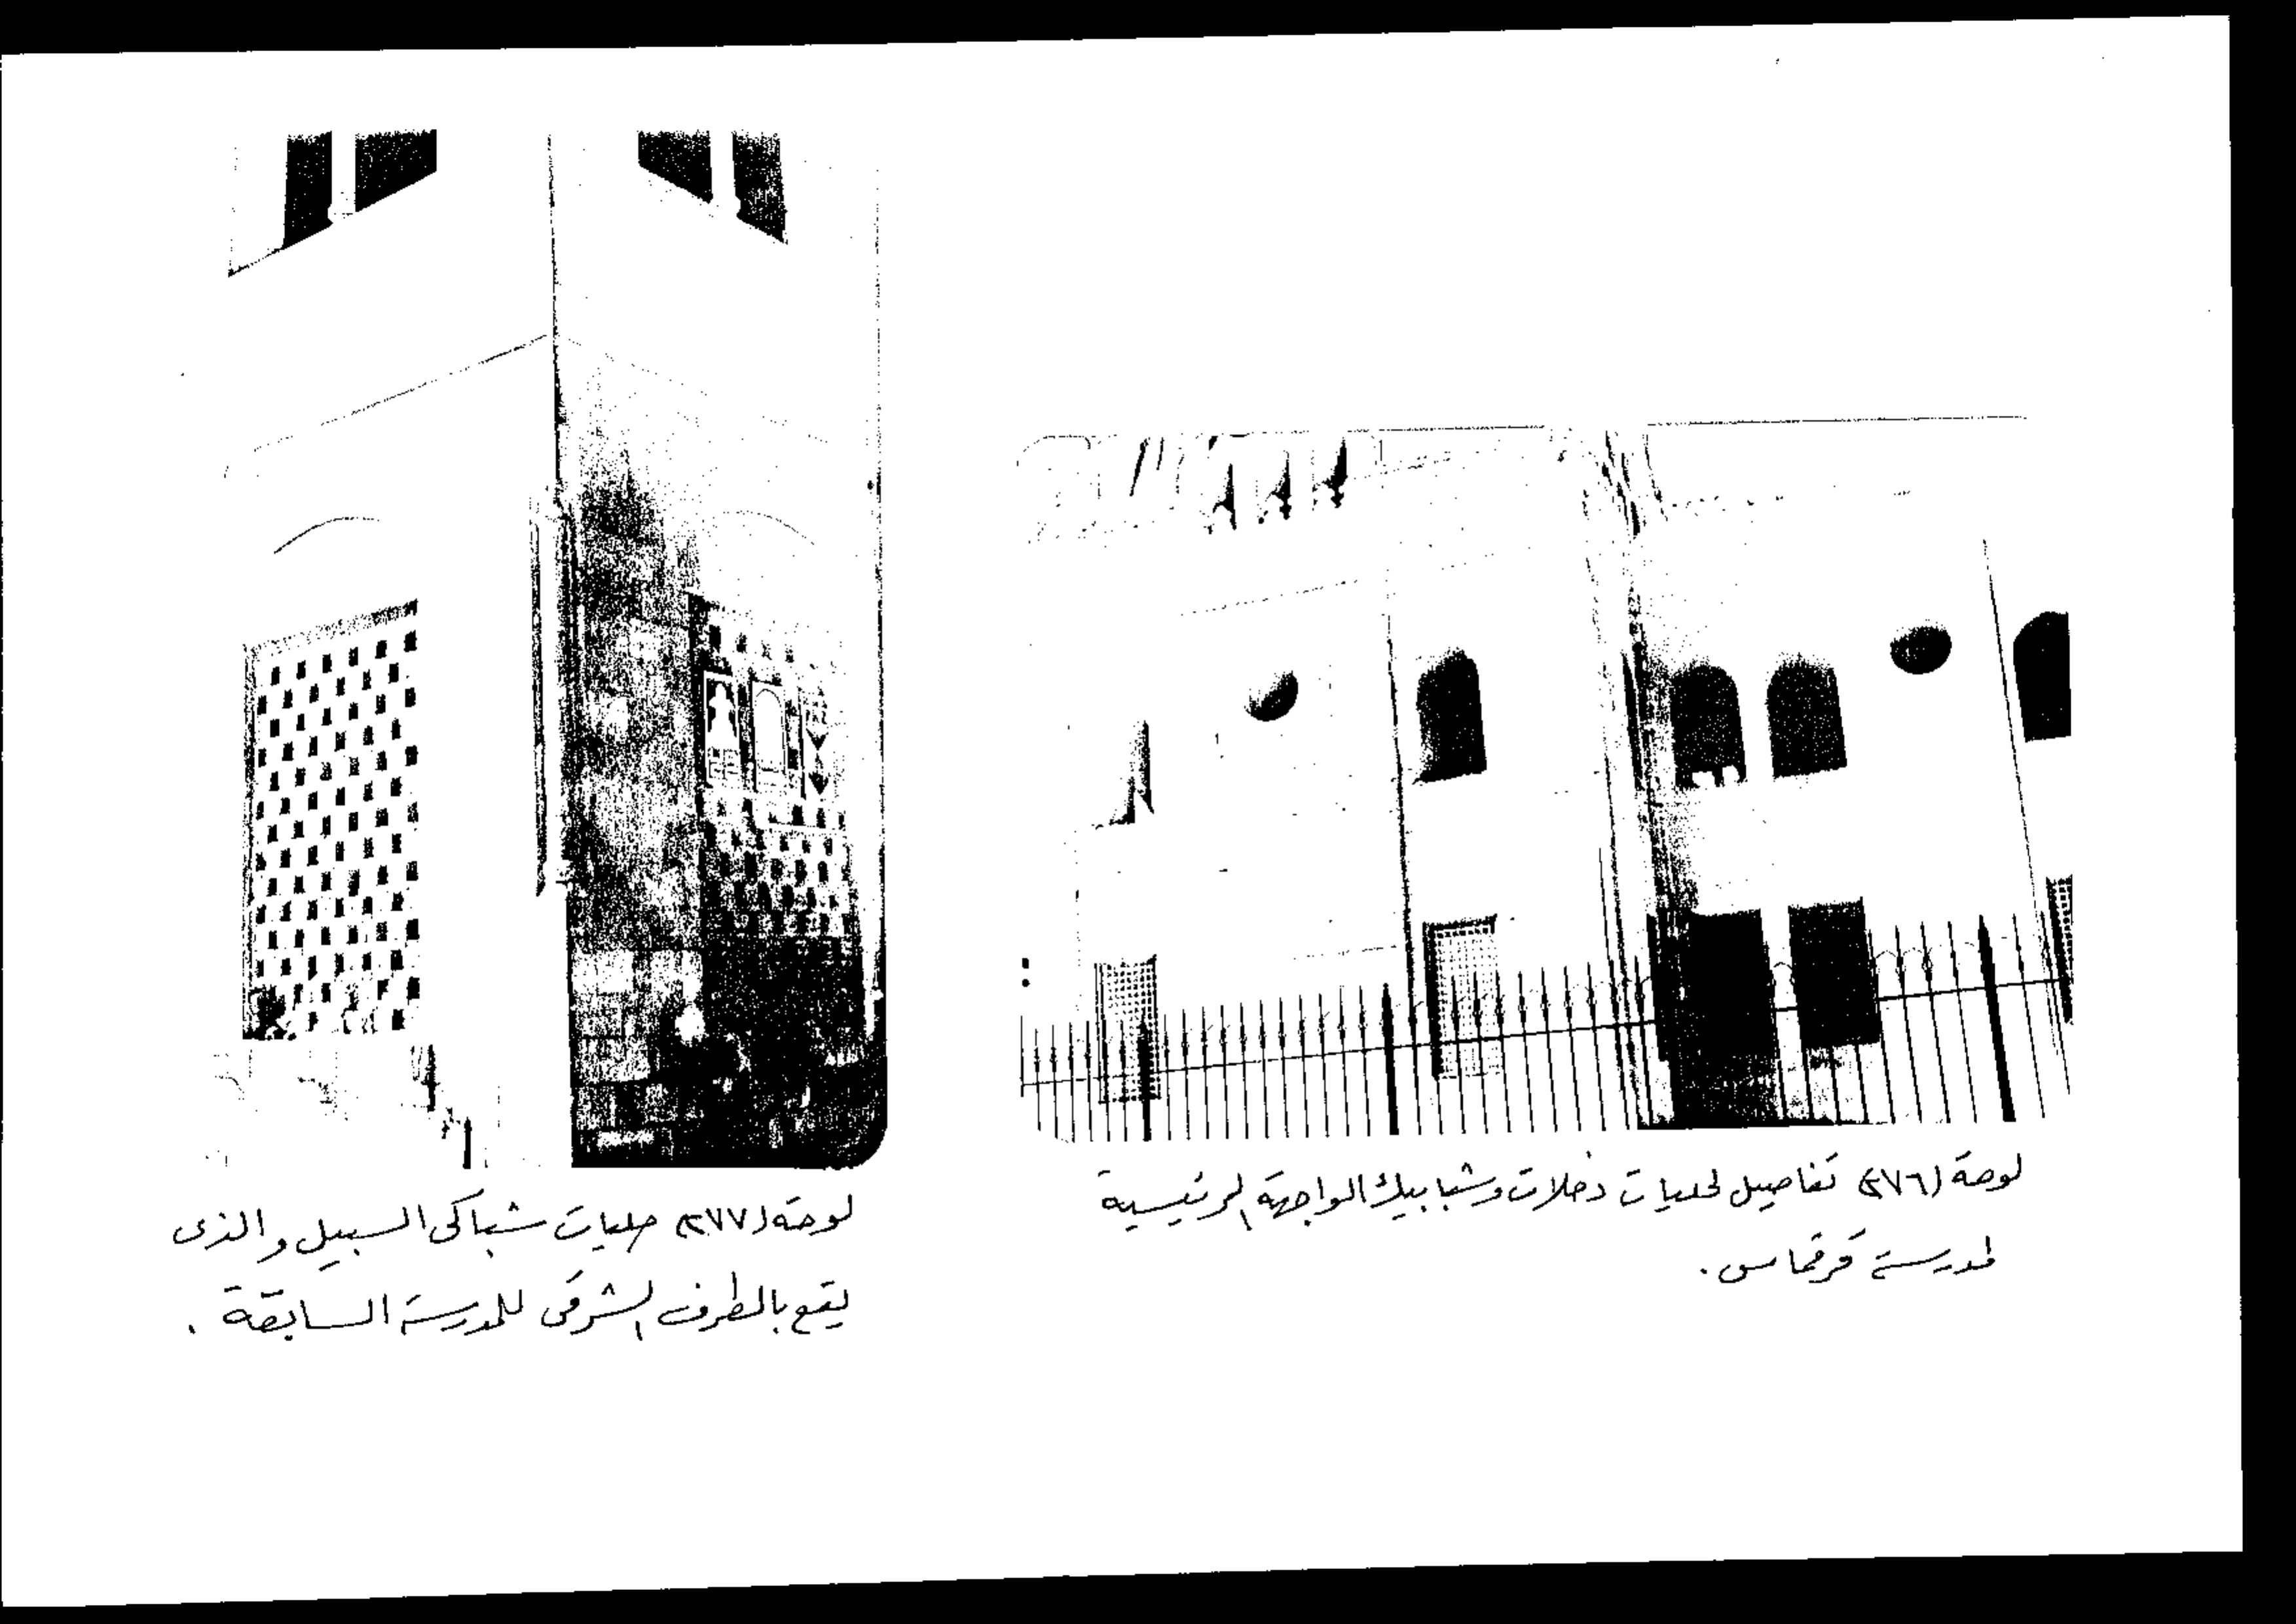 لوحة (٢٧٦) تفاصيل لحليات دخلات وشبابيك الواجهة الرئيسية
لمدرسة قرقماس .
لوحة (٢٧٧) حليات شباكى السبيل والذى
يقع بالطرف الشرقى للمدرسة السابقة .